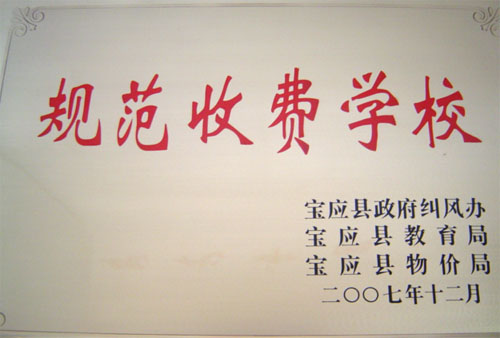 规范收费学校
宝应县政府纠风办
宝应县教育局
宝应县物价局
二〇〇七年十二月